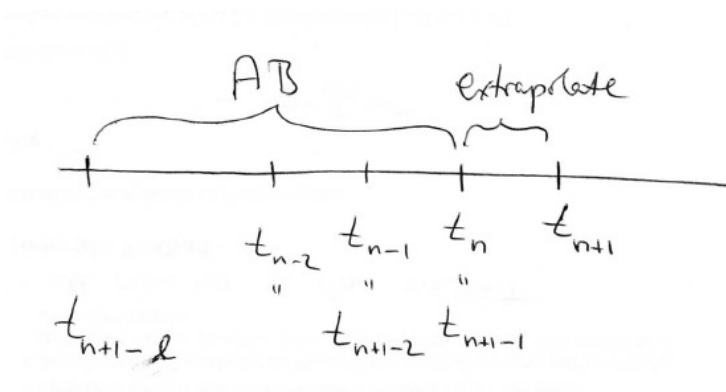 AB extrapolate
t_{n-2} t_{n-1} t_n t_{n+1}
" " "
t_{n+1-l} t_{n+1-2} t_{n+1-1}